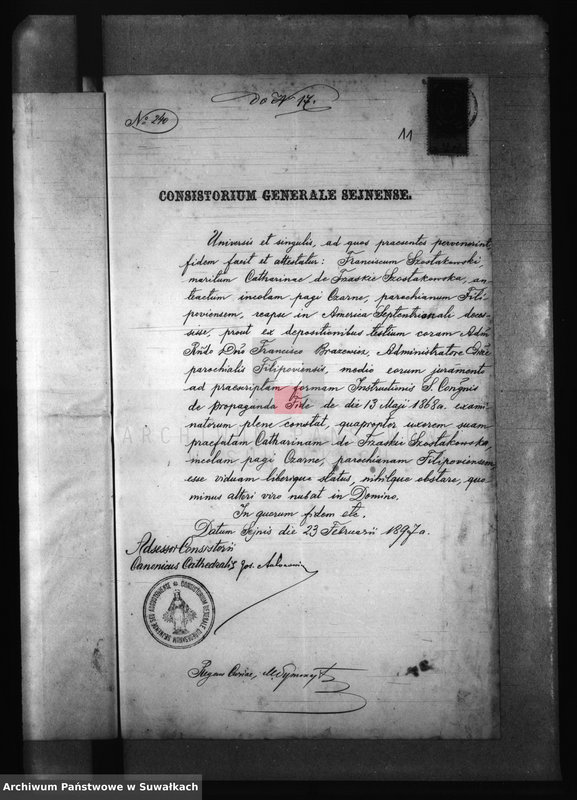 do № 17.
№ 240
11
CONSISTORIUM GENERALE SEJNENSE.
Universis et singulis, ad quos praesentes pervenerint,
fidem facit et attestatur: Franciscum Szostakowski,
maritum Catharinae de Traskie Szostakowska, an-
teactum incolam pagi Czarne, parochianum Fili-
poviensem, reapse in America Septentrionali deces-
sisse, prout ex depositionibus testium coram Adm
Rndo Dno Francisco Administratore Ecclae
parochialis Filipoviensis, medio eorum juramento
ad praescriptam formam Instructionis S. Congnis
de Propaganda Fide de die 13 Maji 1868 a. exami-
natorum plene constat, quapropter uxorem suam
praefatam Catharinam de Traskie Szostakowska,
incolam pagi Czarne, parochianam Filipoviensem
esse viduam liberique status, nihilque obstare, quo
minus alteri viro nubat in Domino.
In quorum fidem etc.
Datum Sejnis die 23 Februarii 1897 a.
Adsessor Consistorii
Canonicus Cathedralis Jos.
CONSISTORIUM GENERALE
Regens Curiae,
ARCH
Archiwum Państwowe w Suwałkach